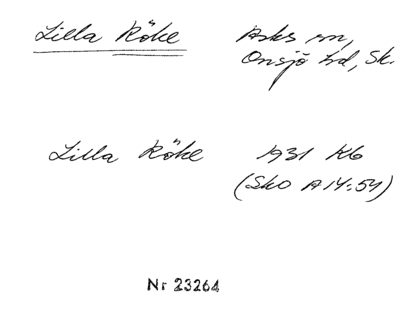 Lilla Röke Asks sn,
Onsjö hd, Sk.
Lilla Röke 1931 Kb
(Sko A14:54)
Nr 23264